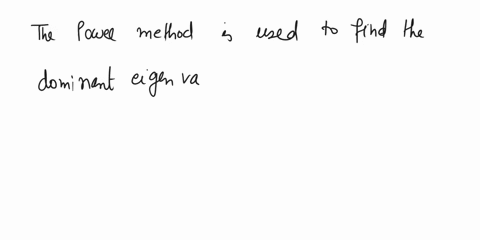 The Power method is used to find the
dominant eigen va